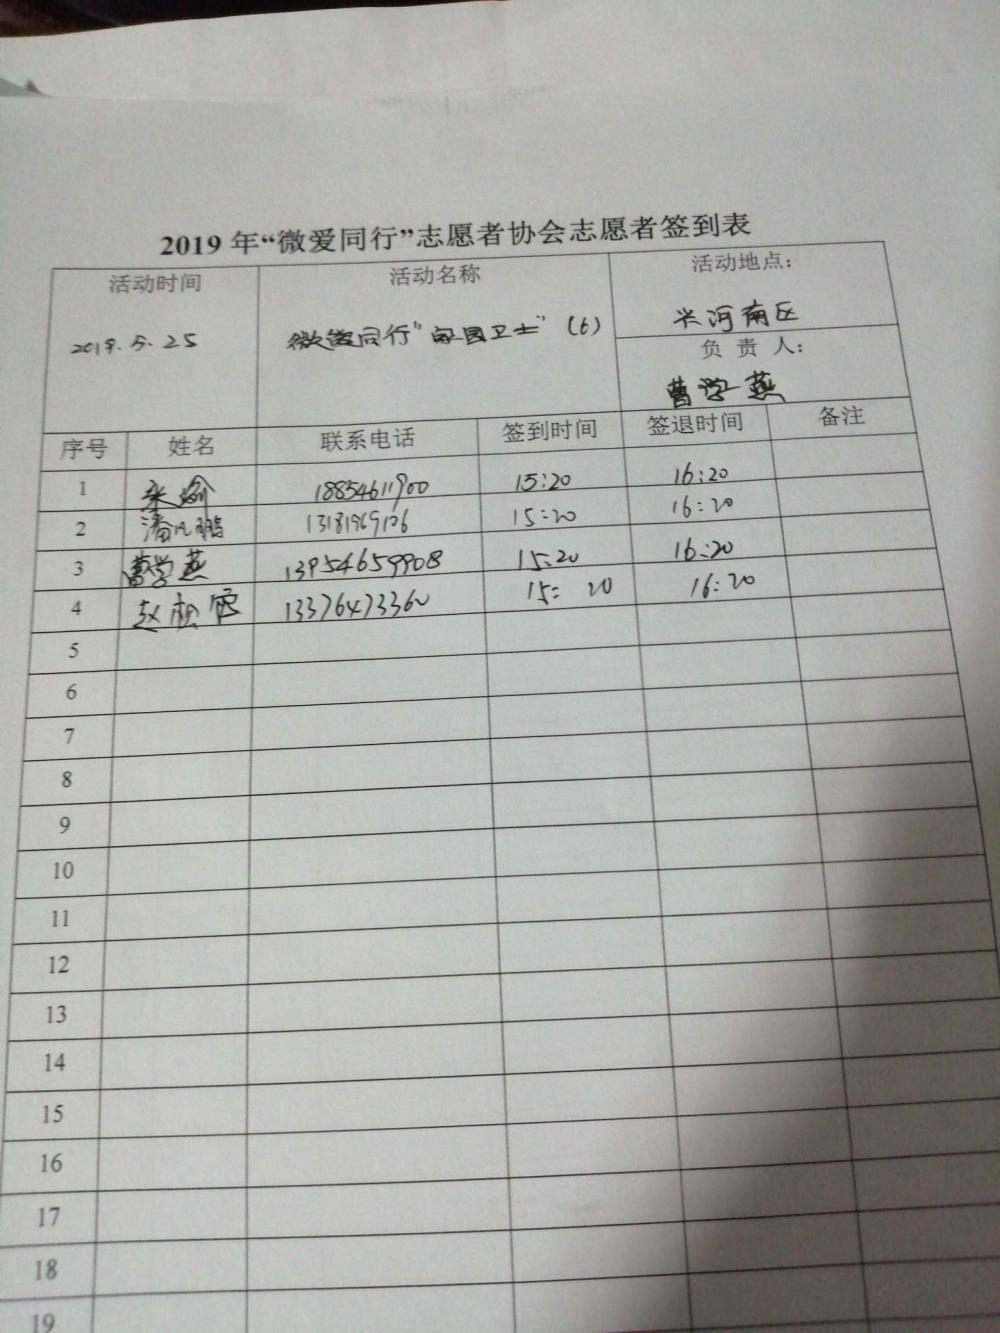 2019年“微爱同行”志愿者协会志愿者签到表
活动时间 活动名称 活动地点：
2019.5.25 微爱同行“家园卫士”（6） 兴河南区
负责人：
曹学燕
序号 姓名 联系电话 签到时间 签退时间 备注
1 18854611900 15:20 16:20
2 潘凡鹏 13181969126 15:20 16:20
3 曹学燕 13954659908 15:20 16:20
4 赵松 13376473360 15:20 16:20
5
6
7
8
9
10
11
12
13
14
15
16
17
18
19